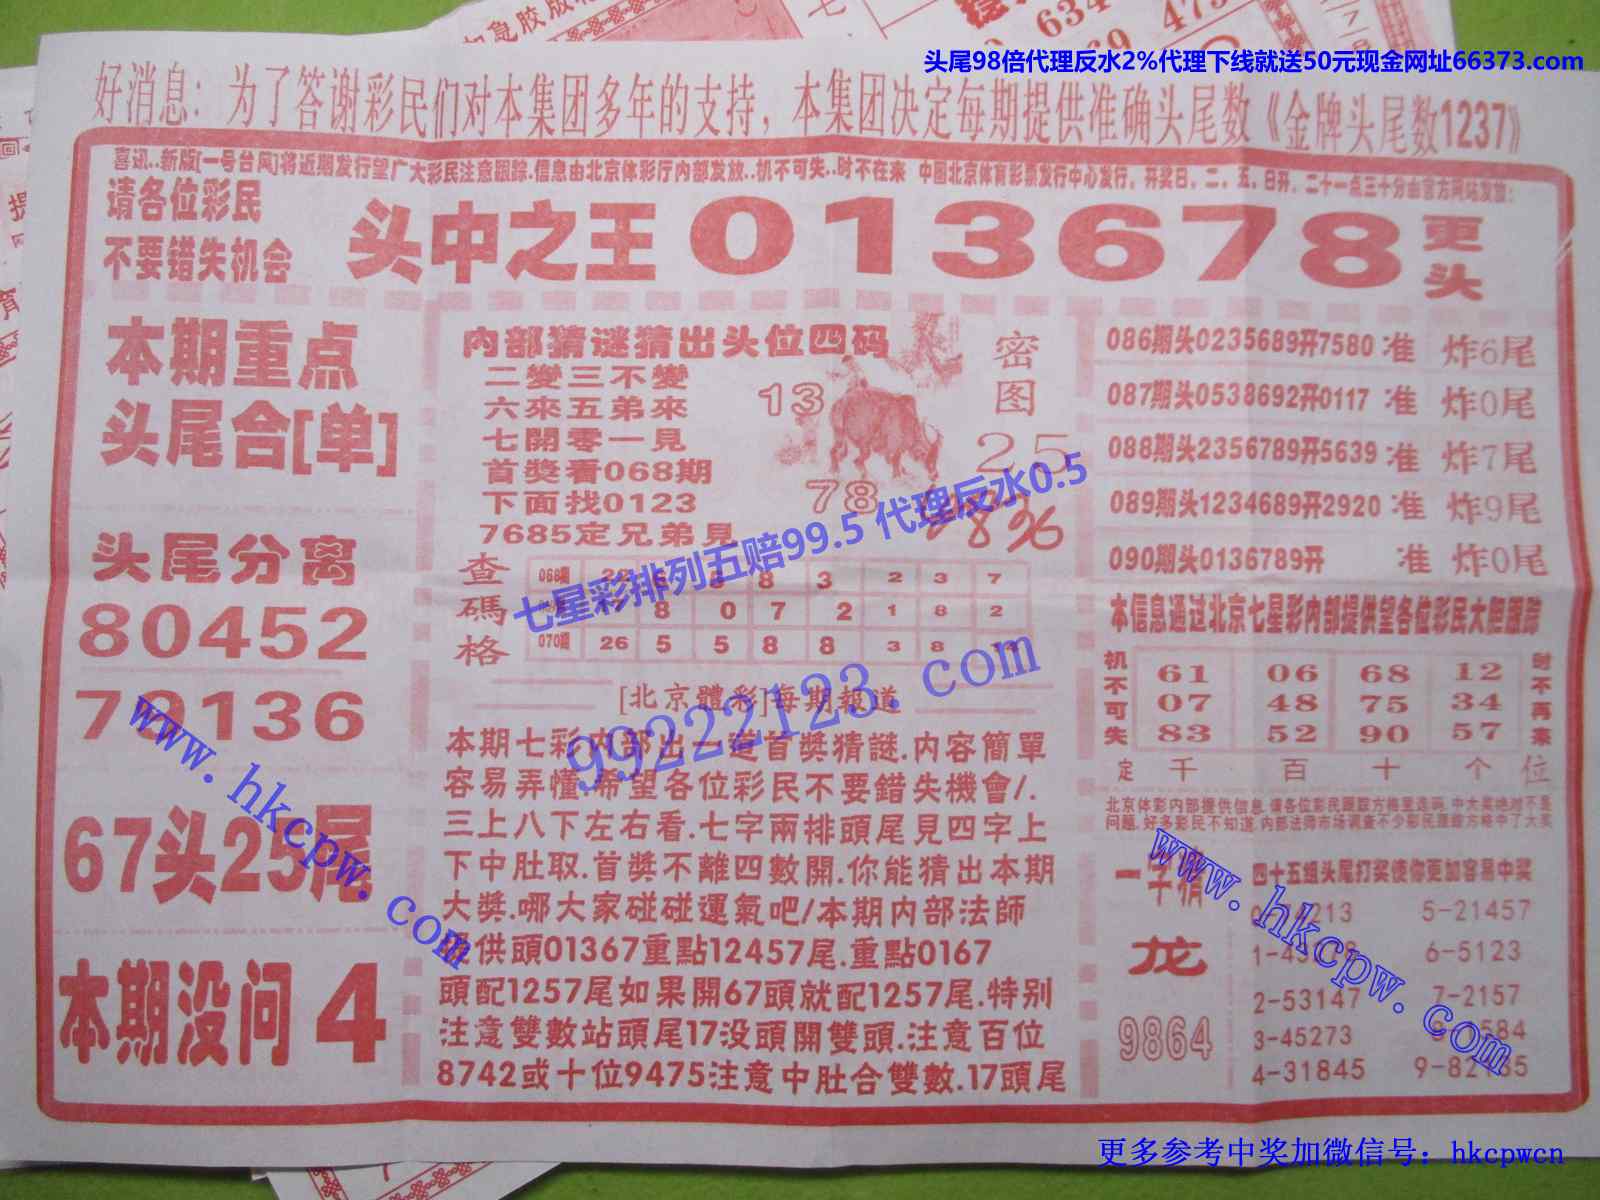 头尾98倍代理反水2%代理下线就送50元现金网址66373.com
好消息：为了答谢彩民们对本集团多年的支持，本集团决定每期提供准确头尾数《金牌头尾数1237》
喜讯..新版[一号台风]将近期发行望广大彩民注意跟踪.信息由北京体彩厅内部发放..机不可失..时不在来 中国北京体育彩票发行中心发行，开奖日，二、五、日开，二十一点三十分由官方网站发放：
请各位彩民
不要错失机会
头中之王013678
更头
本期重点
头尾合[单]
头尾分离
80452
79136
67头25尾
本期没问4
内部猜谜猜出头位四码
二變三不變
六來五弟來
七開零一見
首獎看068期
下面找0123
7685定兄弟見
密图
13
25
78
七星彩排列五赔99.5 代理反水0.5
查碼格
068期 8 3 2 3 7
8 0 7 2 1 8 2
070期 26 5 5 8 8 3 8 14
[北京體彩]每期報道
本期七彩内部出一道首獎猜謎.内容簡單
容易弄懂.希望各位彩民不要錯失機會/.
三上八下左右看.七字兩排頭尾見四字上
下中肚取.首獎不離四數開.你能猜出本期
大獎.哪大家碰碰運氣吧/本期内部法師
提供頭01367重點12457尾.重點0167
頭配1257尾如果開67頭就配1257尾.特别
注意雙數站頭尾17没頭開雙頭.注意百位
8742或十位9475注意中肚合雙數.17頭尾
086期头0235689开7580 准 炸6尾
087期头0538692开0117 准 炸0尾
088期头2356789开5639 准 炸7尾
089期头1234689开2920 准 炸9尾
090期头0136789开 准 炸0尾
本信息通过北京七星彩内部提供望各位彩民大胆跟踪
机不可失
61 06 68 12
07 48 75 34
83 52 90 57
时不再来
定 千 百 十 个 位
北京体彩内部提供信息.请各位彩民跟踪方格里选码.中大奖绝对不是
问题.好多彩民不知道.内部法师市场调查不少彩民跟踪方格中了大奖
一字猜
龙
9864
四十五组头尾打奖使你更加容易中奖
5-21457
6-5123
2-53147 7-2157
3-45273
4-31845
www.hkcpw.com
99222123.com
www.hkcpw.com
更多参考中奖加微信号：hkcpwcn